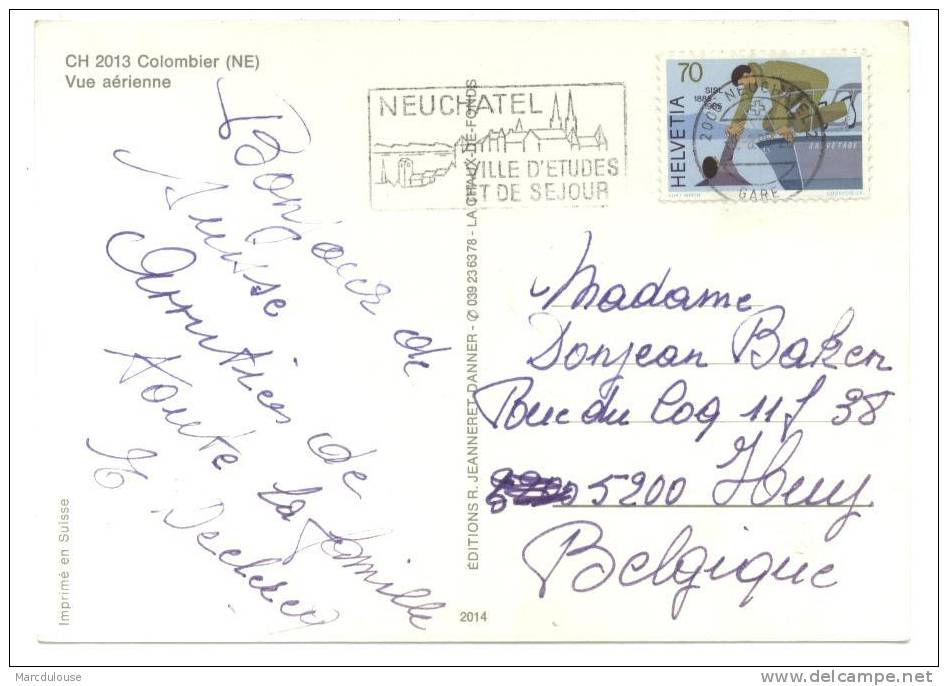 CH 2013 Colombier (NE)
Vue aérienne
NEUCHATEL
VILLE D'ETUDES
ET DE SEJOUR
70
SISL
1885-
1985
HELVETIA
SAUVETAGE
2000 NEUCHATEL
GARE
Bonjour de
Suisse
Amitiés de
toute la famille
Madame
Donjean Baken
Rue du Coq 11/38
5200 Huy
Belgique
ÉDITIONS R. JEANNERET DANNER - ✆ 039 236378 - LA CHAUX-DE-FONDS
Imprimé en Suisse
2014
Marcdulouse
www.delcampe.net